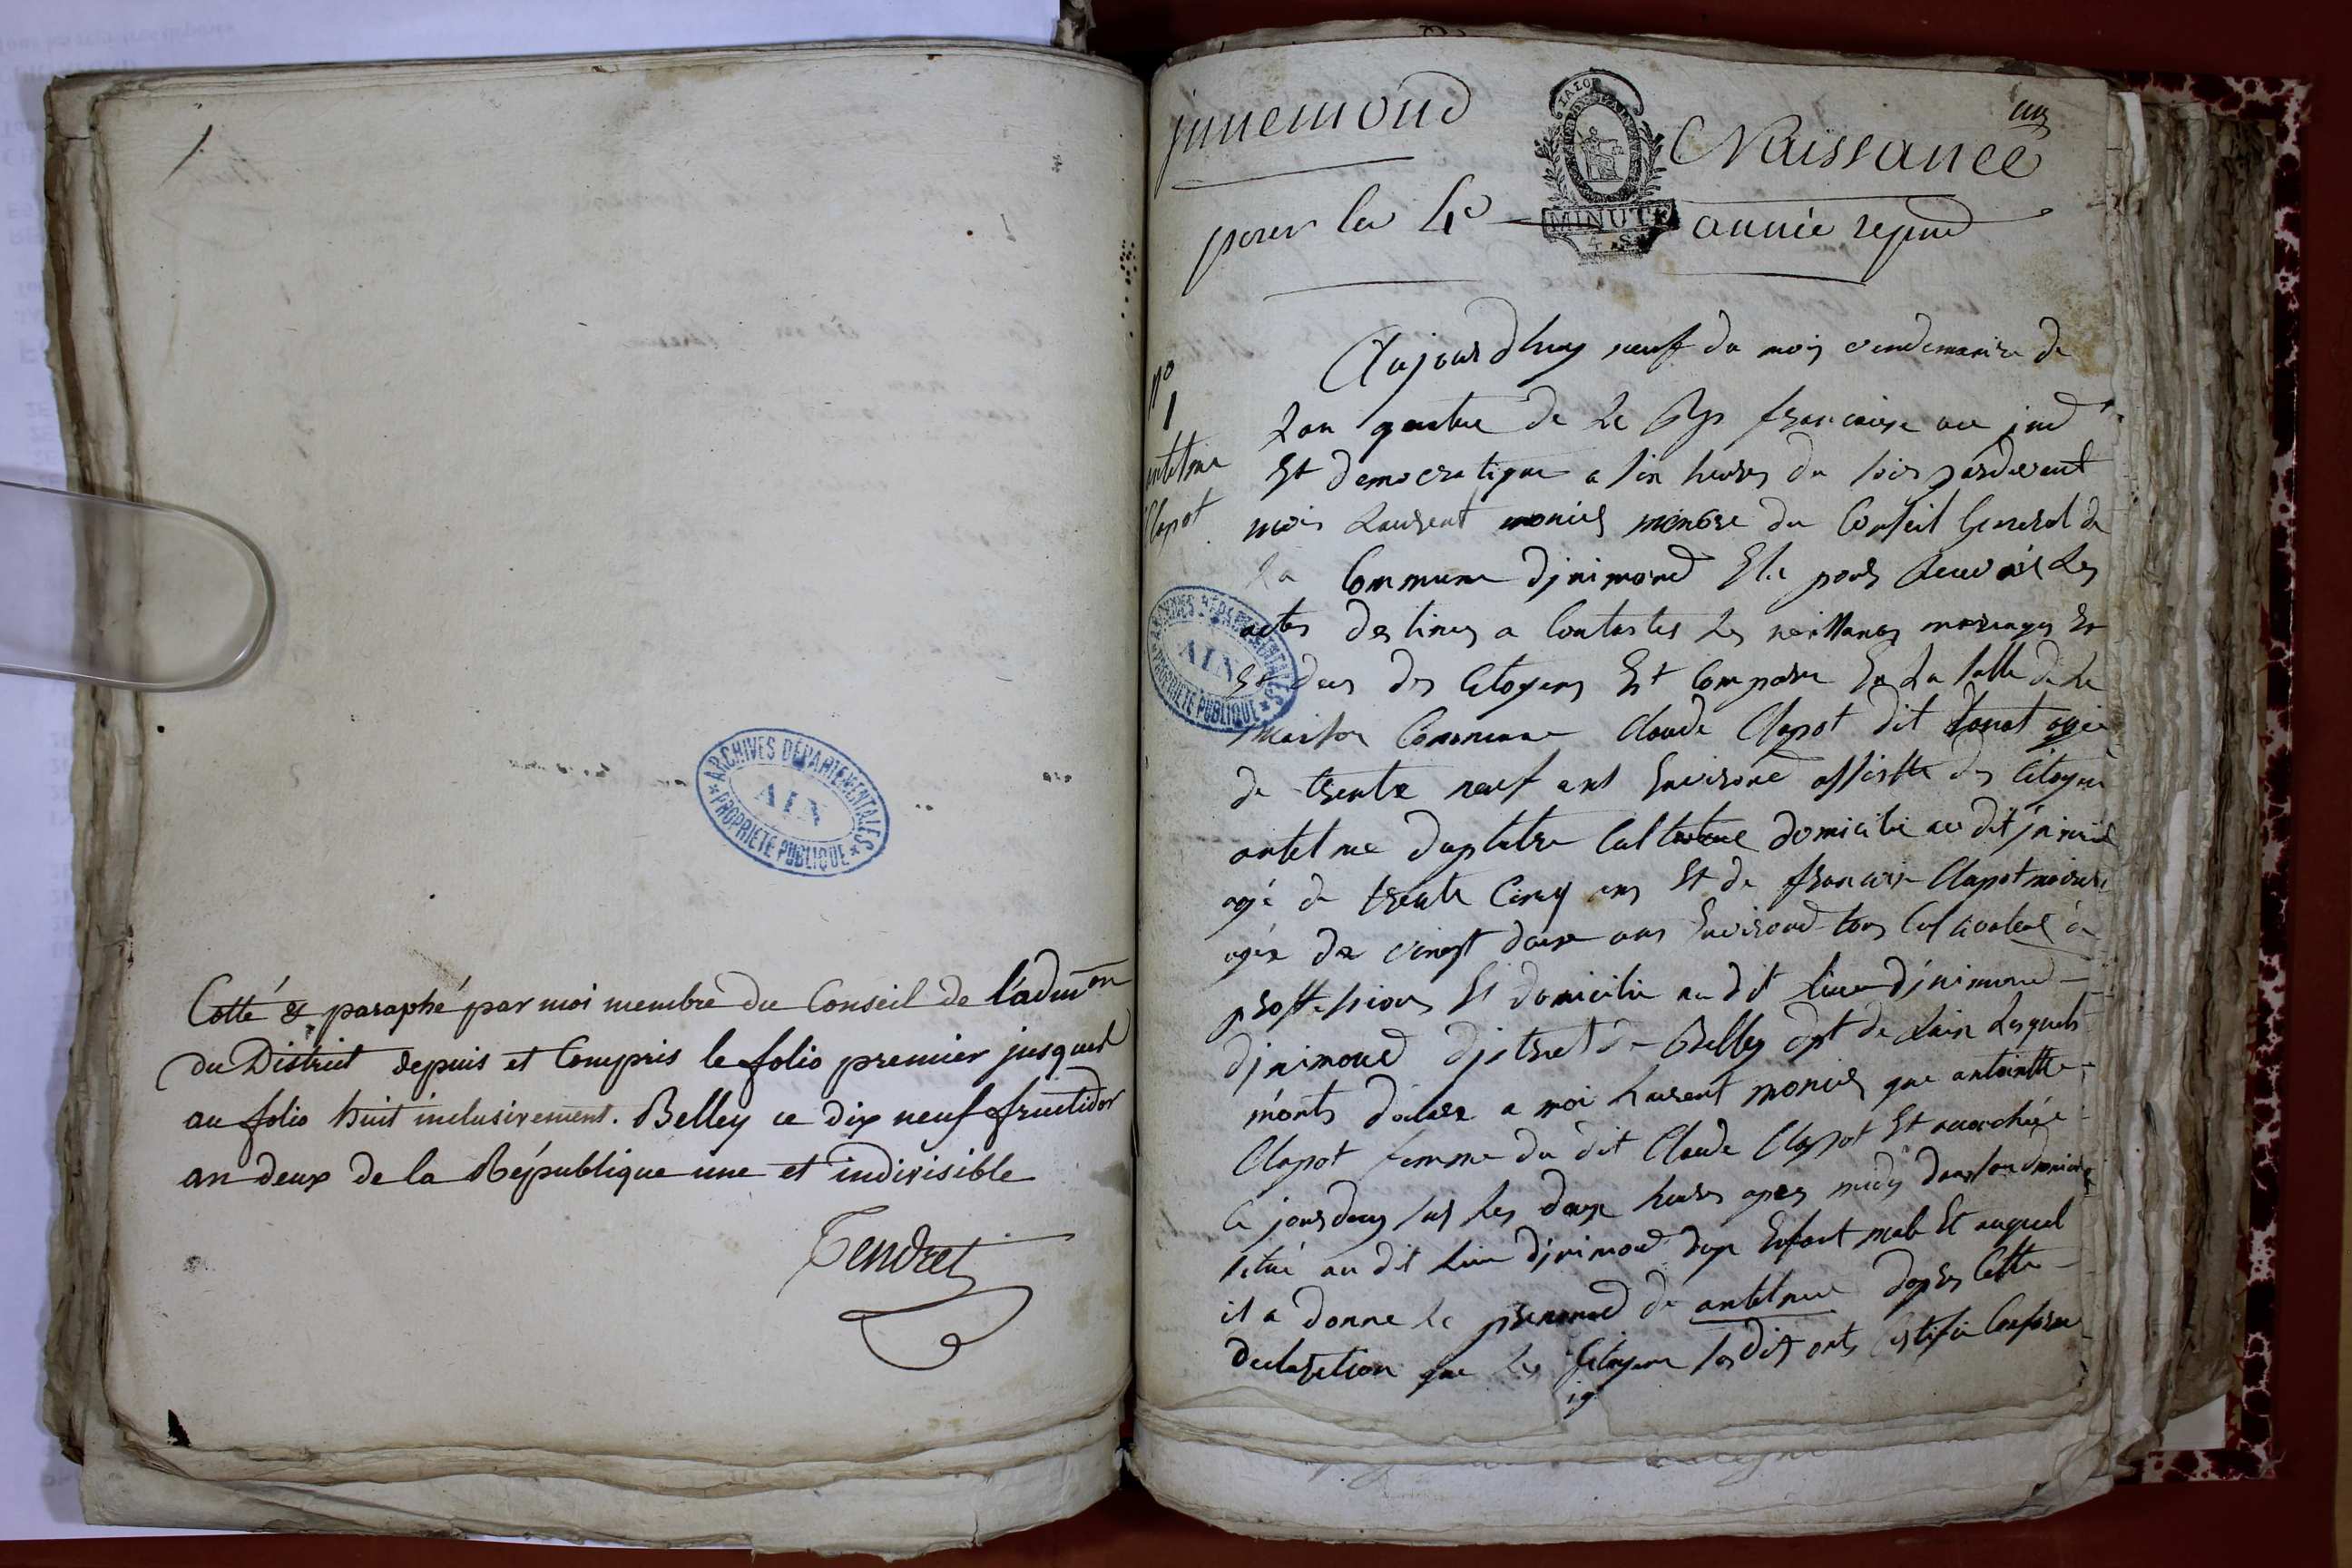 Cotté & paraphé par moi membre du Conseil de l'admon
du District depuis et Compris le folio premier jusques
au folio huit inclusivement. Belley ce dix neuf fructidor
an deux de la République une et indivisible
Tendret
ARCHIVES DÉPARTEMENTALES
AIN
PROPRIÉTÉ PUBLIQUE
jnnemond
Naissance
un
pour la 4e
MINUTE
année
no
1
antelme
Clapot
Aujourdhuy neuf du mois vendemaire de
Lan quatre de Le francaise
Et democratique a six heures du soir pardevant
moi Laurent monier menbre du Conseil General de
la Commune djnimond Elu pour Recevoir Les
actes destines a Constater Les naissances mariages Et
deces des Citoyens Et Comparu En La salle de La
maison Commune Claude Clapot dit agé
de trente neuf ans Environd assiste des Citoyen
antelme domicilié au dit jnimond
agé de trente Cinq ans Et de francois Clapot
agée de vingt deux ans Environd tous Cultivateur de
proffession Et domicilie au dit Lieu djnimond
djnimond djstrict de Belley dpt de Lain Lesquels
monts declare a moi Laurent monier que antoinette
Clapot femme du dit Claude Clapot Et accouchée
Ce jourduy sur Les deux heures apres midy dans son domicile
situé au dit Lieu djnimond dun Enfant male Et auquel
il a donne le prenomd de antelme dapres Cette
declaration que Les Citoyens susdit onts Certifié Conforme
ARCHIVES DÉPARTEMENTALES
AIN
PROPRIÉTÉ PUBLIQUE